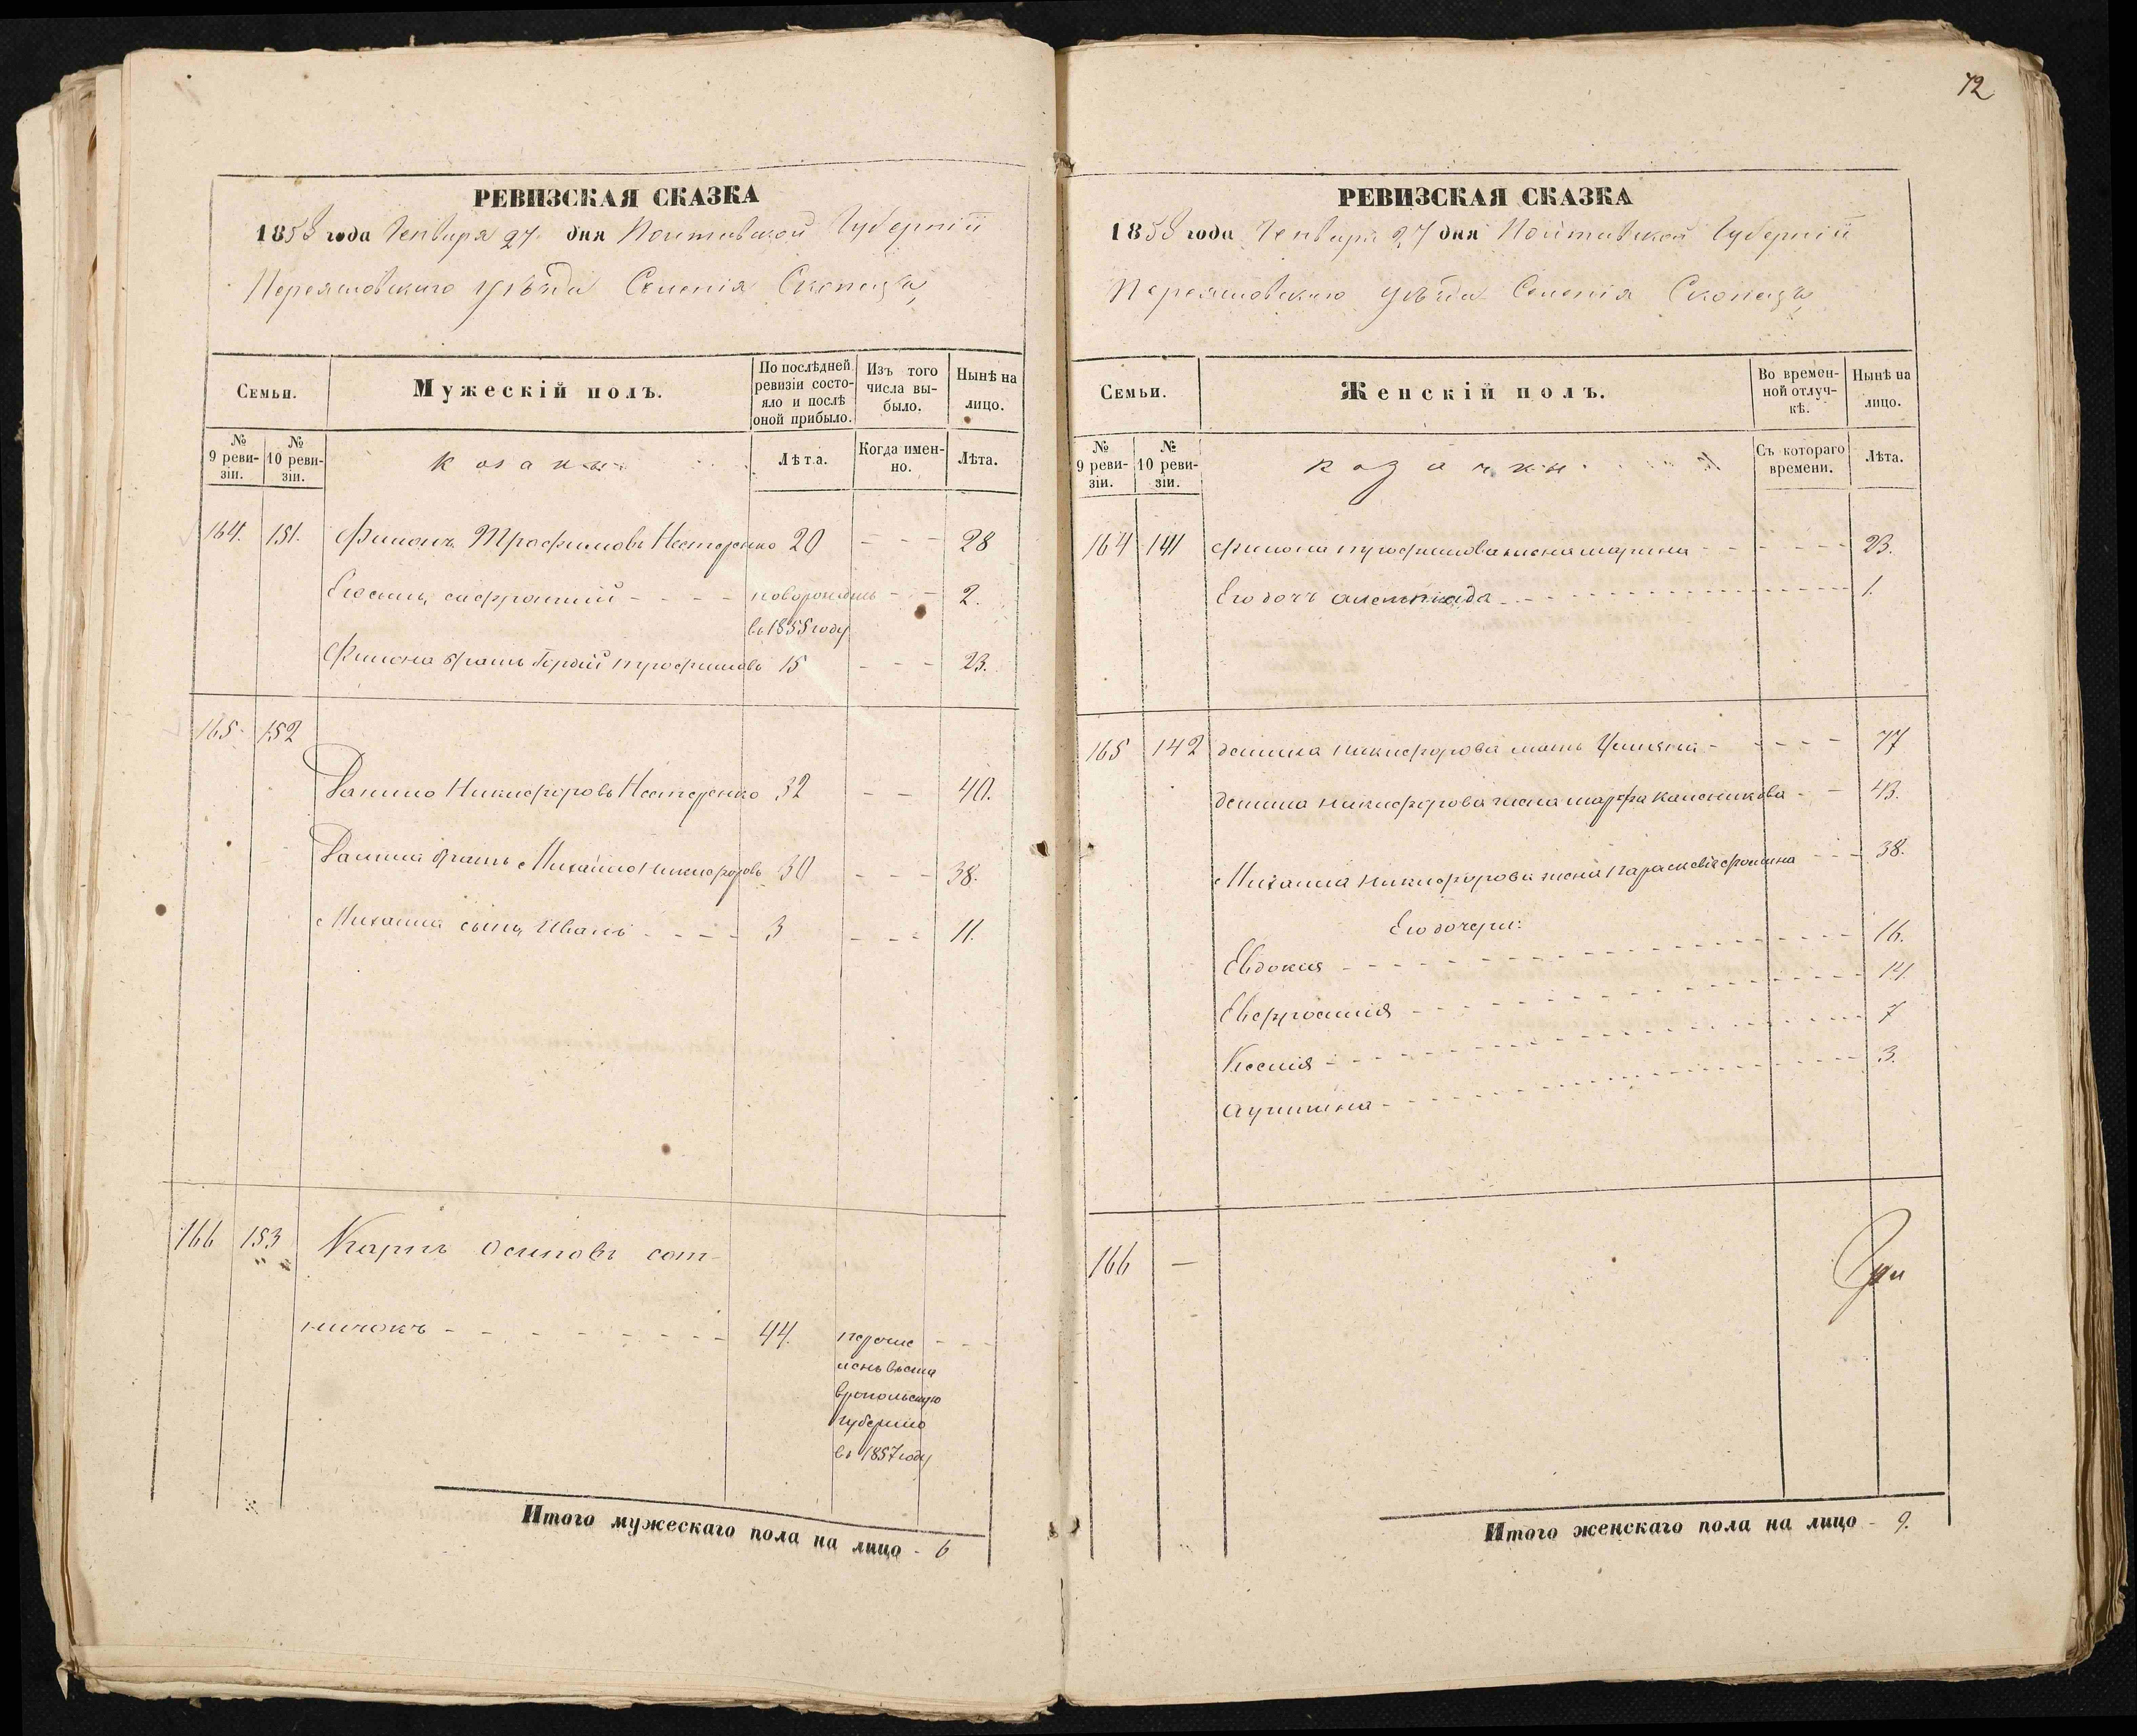 РЕВИЗСКАЯ СКАЗКА
1858 года Генваря 27 дня Полтавской Губерніи
Переяславскаго уѣзда Селенія Скопецъ
Семьи.
Мужескій полъ.
По послѣдней ревизіи состояло и послѣ оной прибыло.
Изъ того числа выбыло.
Нынѣ на лицо.
№ 9 ревизіи.
№ 10 ревизіи.
козаки
Лѣта.
Когда именно.
Лѣта.
164. 151. Филонъ Трофимовъ Нестеренко 20 - - - 28
Его сынъ софроній - - - - новорожденъ - - 2.
въ 1855 году
Филона братъ Гордій трофимовъ 15 - - - 23.
165 152
Данило Никифоровъ Нестеренко 32 - - 40.
Данила братъ Михайло никифоровъ 30 - - - 38.
Михаила сынъ Иванъ - - - - 3 - - - 11.
166 153 Карпъ осиповъ сот-
ничокъ - - - - - - - - - 44. перечис - - -
ленъ въ ста
вропольскую
губернію
въ 1857 году
Итого мужескаго пола на лицо - 6
72
РЕВИЗСКАЯ СКАЗКА
1858 года Генваря 27 дня Полтавской Губерніи
Переяславскаго уѣзда Селенія Скопецъ
Семьи.
Женскій полъ.
Во временной отлучкѣ.
Нынѣ на лицо.
№ 9 ревизіи.
№ 10 ревизіи.
козачки
Съ котораго времени.
Лѣта.
164 141 филона трофимова жена марина - - - - - - - 23.
Его дочь - - - - - - - 1.
165 142 данила никифорова мать - - - - - 77
данила никифорова жена марфа колесникова - - 43.
Михаила никифорова жена параскевія - - - 38.
Его дочери:
Евдокия - - - - - - - 16.
Евфросинія - - - - - - - 14.
Ксенія - - - - - - - 7
- - - - - - - 3.
166 —
Итого женскаго пола на лицо - 9.